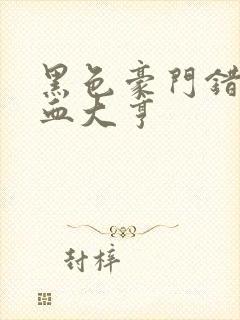 黑色豪門錯
血大亨
封梓